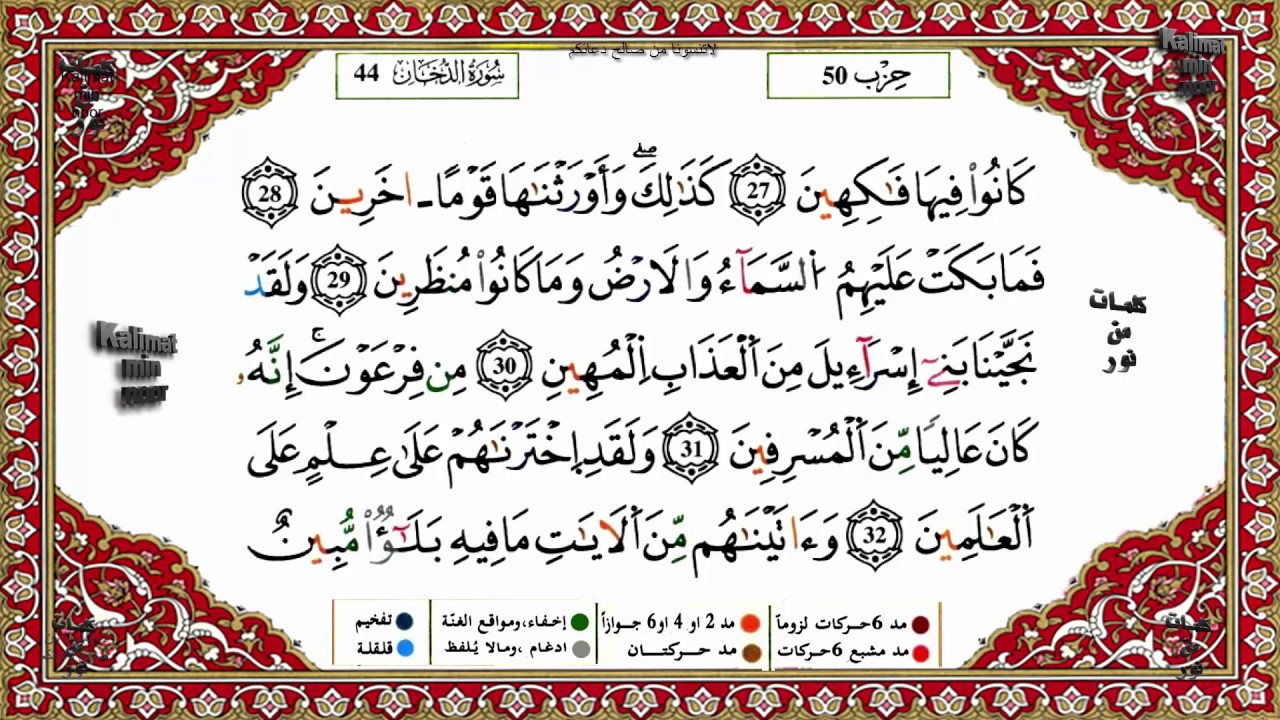 لاتنسونا من صالح دعائكم
حِزْب 50
سُورَةُ الدُّخَان 44
كَانُواْ فِيهَا فَٰكِهِينَ 27 كَذَٰلِكَۖ وَأَوْرَثْنَٰهَا قَوْمًا ـ اخَرِينَ 28
فَمَا بَكَتْ عَلَيْهِمُ اُ۬لسَّمَآءُ وَالَارْضُ وَمَا كَانُواْ مُنظَرِينَ 29 وَلَقَدْ
نَجَّيْنَا بَنِےٓ إِسْرَآءِيلَ مِنَ اَ۬لْعَذَابِ اِ۬لْمُهِينِ 30 مِن فِرْعَوْنَۚ إِنَّهُۥ
كَانَ عَالِيًا مِّنَ اَ۬لْمُسْرِفِينَ 31 وَلَقَدِ اِ۪خْتَرْنَٰهُمْ عَلَىٰ عِلْمٍ عَلَى
اَ۬لْعَٰلَمِينَ 32 وَءَاتَيْنَٰهُم مِّنَ اَ۬لَايَٰتِ مَا فِيهِ بَلَٰٓؤٌاْ مُّبِينٌ
Kalimat
min
noor
كلمات
من
نور
مد 6 حركات لزوماً
مد 2 او 4 او 6 جوازاً
إخفاء، ومواقع الغنّة
تفخيم
مد مشبع 6 حركات
مد حركتان
ادغام ، ومالا يُلفظ
قلقلة
Kalimat
min
noor
كلمات
من
نور
Kalimat
min
noor
كلمات
من
نور
كلمات
من
نور